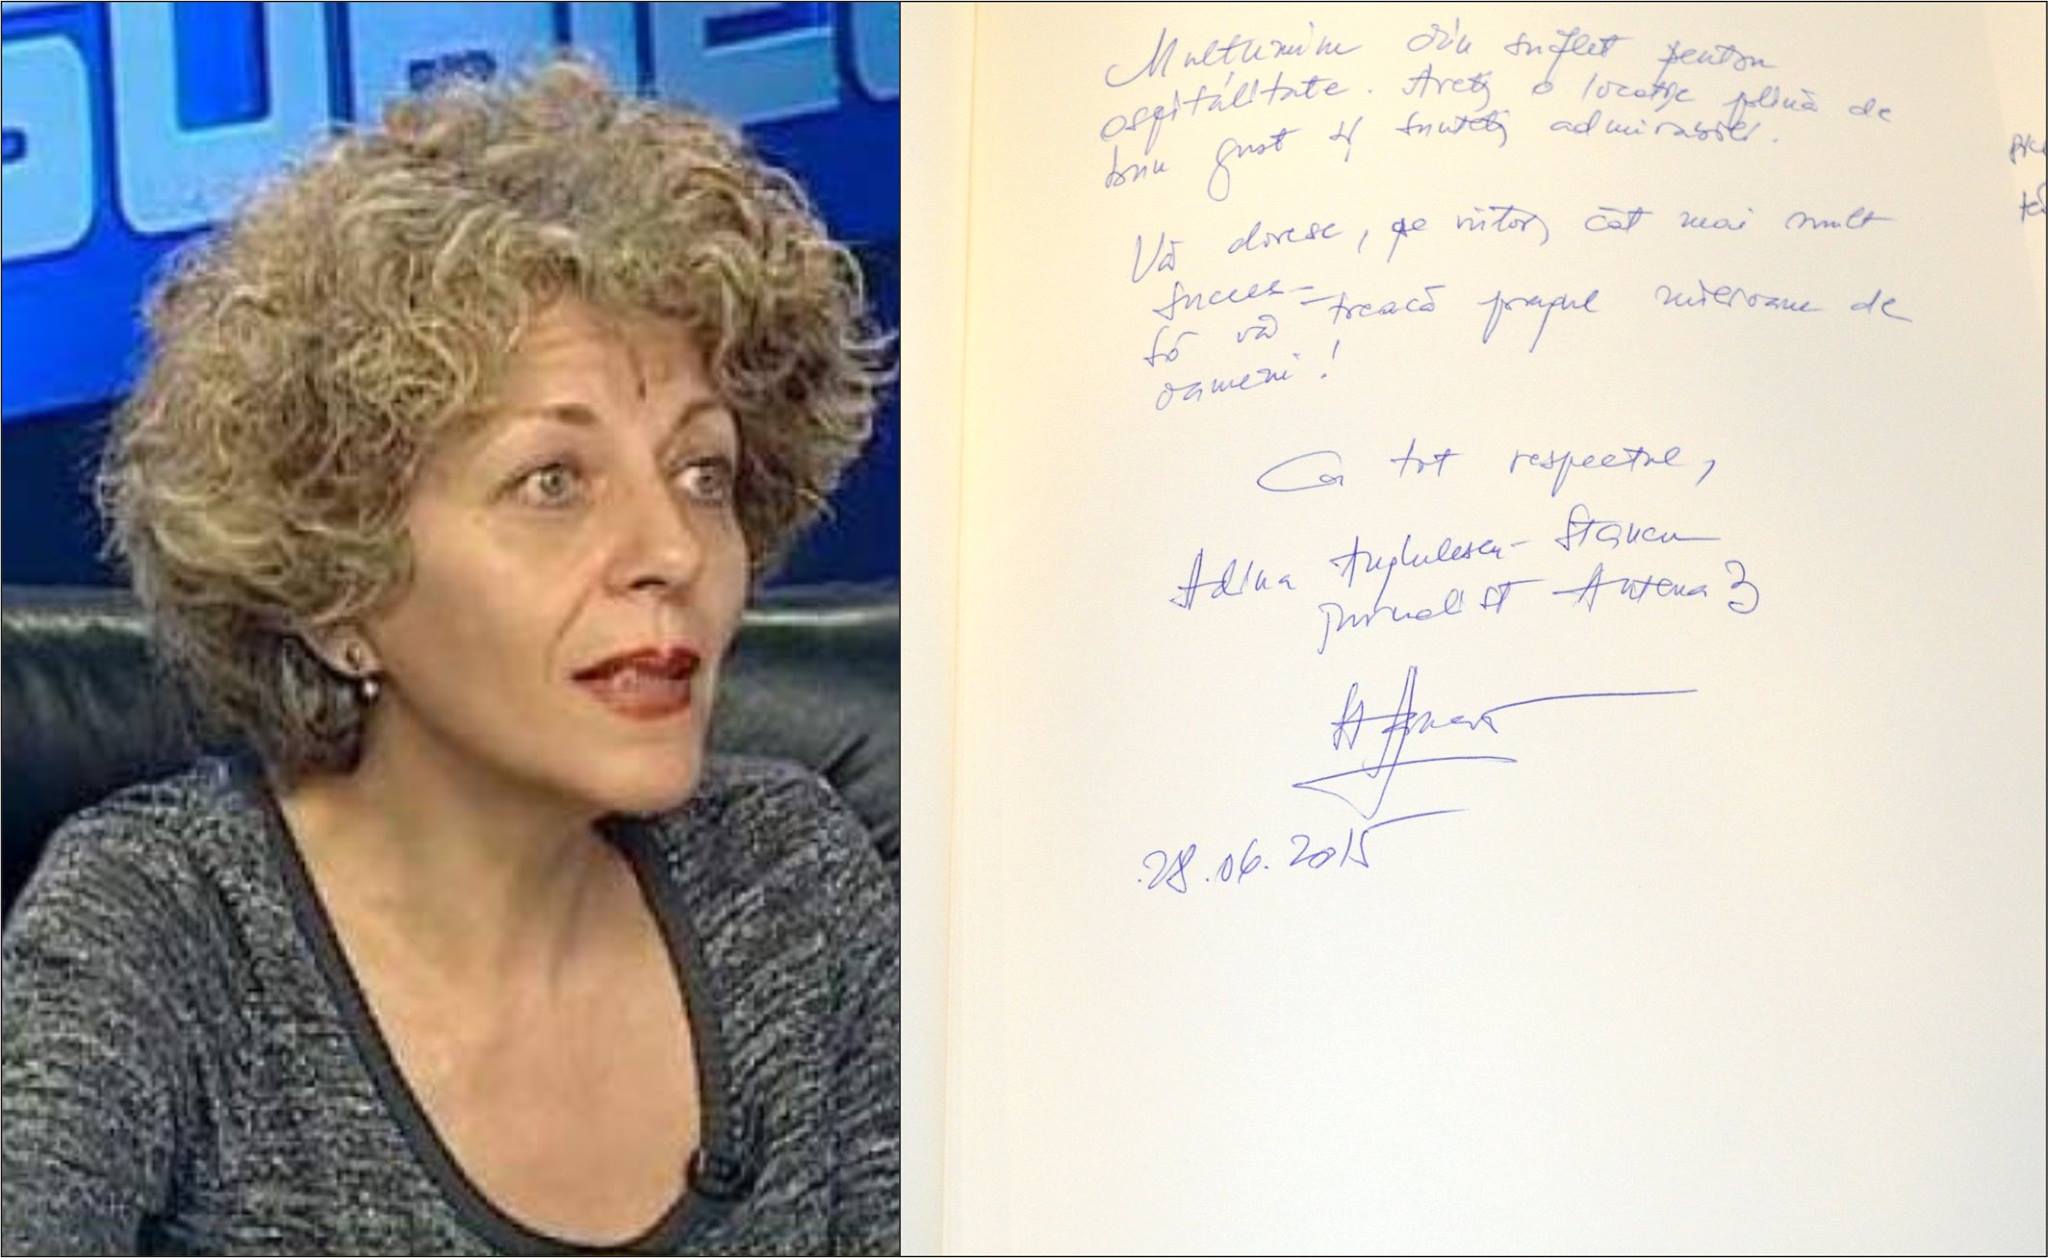 SUBIEC
Mulțumim din suflet pentru
ospitalitate. Aveți o locație plină de
bun gust și sunteți admirabili.
Vă doresc, pe viitor, cât mai mult
succes -
să vă treacă pragul milioane de
oameni!
Cu tot respectul,
Adina Anghelescu-Stancu
jurnalist Antena 3
28.06.2015